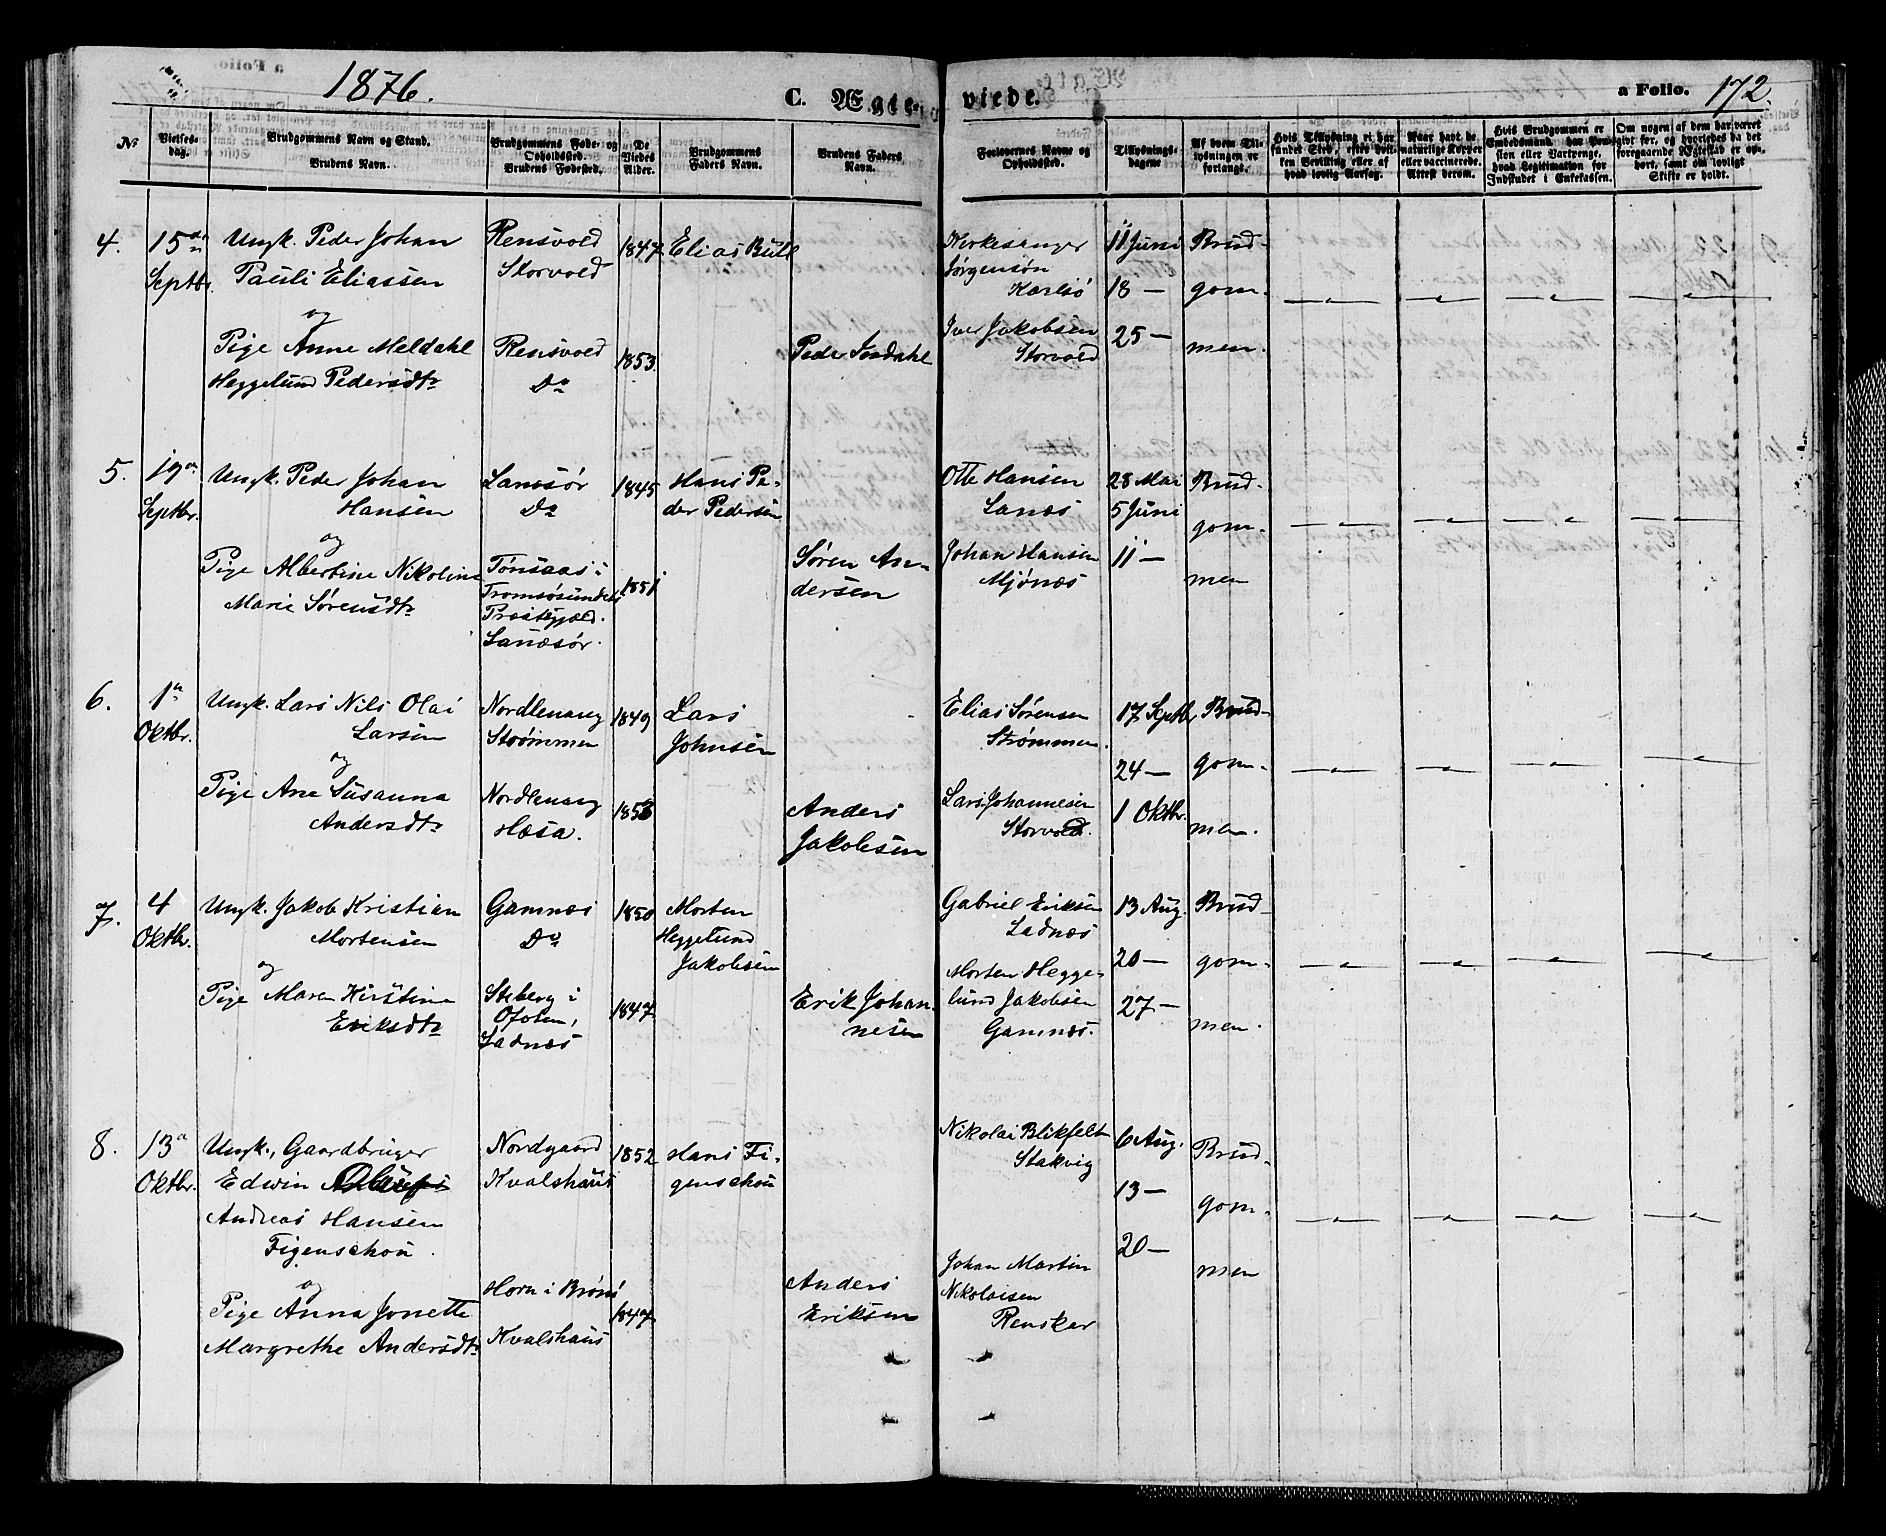 1876.
C. Ægte-
viede.
a Folio. 172.
No
Vielses-
dag.
Brudgommens Navn og Stand.
Brudens Navn.
Brudgommens Føde- og
Opholdssted.
Brudens Fødested.
De
Viedes
Alder.
Brudgommens
Faders Navn.
Brudens Faders
Navn.
Forlovernes Navne og
Opholdssted.
Tillysnings-
dagene
Af hvem Til-
lysningen er
forlangt.
Hvis Tillysning ei har
fundet Sted, efter hvil-
ken Bevilling eller af
hvad lovlig Aarsag.
Naar havt de
naturlige Kopper
eller vaccinerede.
Attest derom.
Hvis Brudgommen er
Embedsmand, har Pen-
sion eller Vartpenge,
hvad Legitimation for
Indskudet i Enkekassen.
Om nogen af dem har været
gift før, og hvorledes da det
foregaaende Ægteskab er op-
hørt, samt om lovligt
Skifte er holdt.
4.
15de
Septbr.
Ungk. Peder Johan
Pauli Eliassen
og
Pige Anne Meldahl
Heggelund Pedersdtr
Rensvold
Storvold
Rensvold
Do
1847.
1853.
Elias Bull
Peder Sordahl
Kirkesanger
Jørgensøn
Karlsø
Iver Jakobsen
Storvold
11 Juni
18 —
25 —
Brud-
gom-
men.
5.
19de
Septbr.
Ungk. Peder Johan
Hansen
og
Pige Albertine Nikoline
Marie Sørensdtr
Lanesør
Do
Tønsaas i
Tromsøsundets
Præstegjæld.
Lanesør.
1845
1851
Hans Pe-
der Pedersen
Søren An-
dersen
Otte Hansen
Lanæs
Johan Hansen
Mjønæs
28 Mai
5 Juni
11 —
Brud-
gom-
men
6.
1ste
Oktbr.
Ungk. Lars Nils Olai
Larsen
og
Pige Ane Susanna
Andersdtr
Nordlenang
Strømmen
Nordlenang
Hæsa.
1849
1853
Lars
Johnsen
Anders
Jakobsen
Elias Sørensen
Strømmen.
Lars Johannesen
Storvold.
17 Septbr.
24 —
1 Oktbr.
Brud-
gom-
men.
7.
4
Oktbr.
Ungk. Jakob Kristian
Mortensen
og
Pige Maren Kirstine
Eriksdtr
Gamnæs
Do
Steberg i
Ofoten,
Ladnæs
1850
1847
Morten
Heggelund
Jakobsen
Erik Johan-
nesen
Gabriel Eriksen
Ladnæs
Morten Hegge-
lund Jakobsen
Gamnæs.
13 Aug.
20 —
27 —
Brud-
gom-
men.
8.
13de
Oktbr.
Ungk., Gaardbruger
Edwin
Andreas Hansen
Figenschou.
og
Pige Anna Jonette
Margrethe Andersdtr
Nordgaard
Kvalshaus
Horn i Brønø
Kvalshaus
1852
1847
Hans Fi-
genschou
Anders
Eriksen
Nikolai Blikfelt
Stakvig
Johan Martin
Nikolaisen
Renskar
6 Aug.
13 —
20 —
Brud-
gom-
men